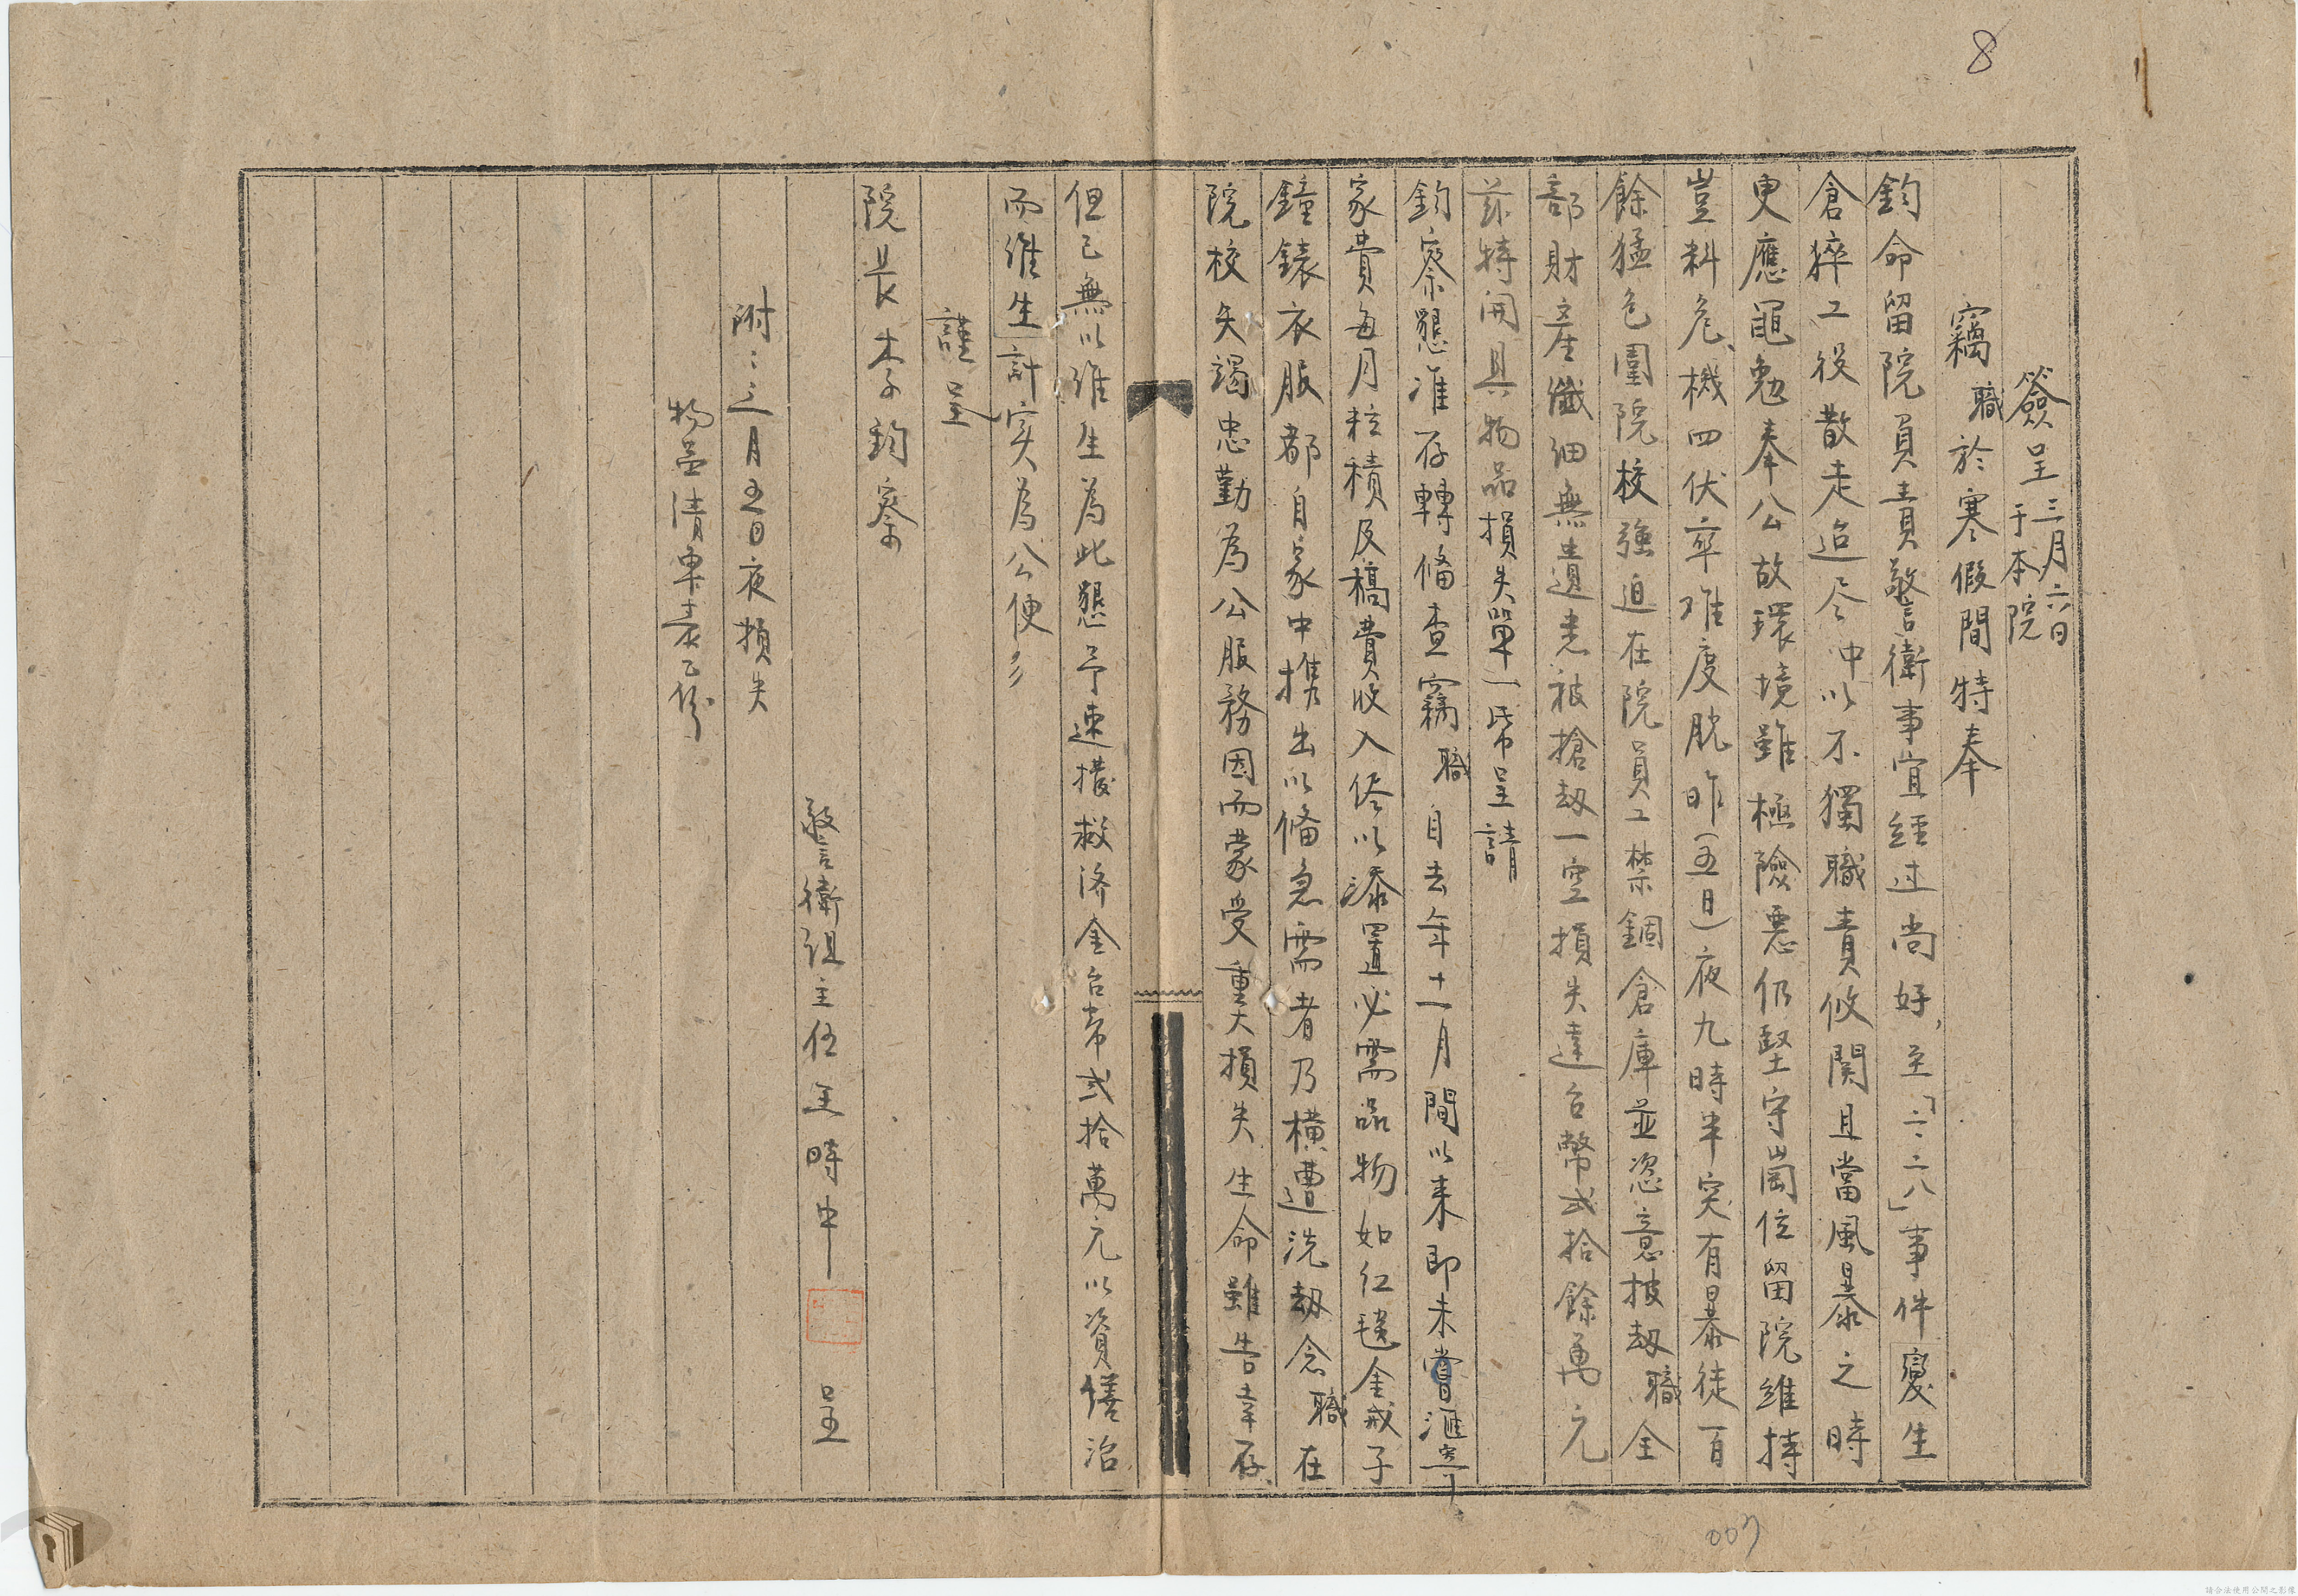 8
簽呈 三月六日
于本院
竊職於寒假間特奉
鈞命留院負責警衛事宜経过尚好,至「二·二八」事件變生
倉猝工役散走迨尽冲以不獨職責攸関且當風暴之時
更應黽勉奉公故環境雖極險悪仍堅守崗位留院維持
豈料危机四伏卒难度脱昨(五日)夜九時半突有暴徒一百
餘猛包圍院校強迫在院員工禁錮倉庫並恣意披劫職全
部財產纖细無遺悉被搶劫一空損失達台幣弍拾餘萬元
茲特開具物品損失單一帋呈請
鈞察懇准存轉俻查竊職自去年十一月間以来即未嘗滙寄
家費每月粒積及稿費收入侭以添置必需品物如红毯金戒子
鐘錶衣服都自家中携出以俻急需者乃横遭洗劫念職在
院校矢竭忠勤為公服務因而蒙受重大損失生命雖告幸存
但已無以維生為此懇予速撥救济金台幣弍拾萬元以資繕治
而維生計实為公便
謹呈
院長李鈞察
警衛組主任王時中 呈
附:三月五日夜損失
物品清單表乙份
007
請合法使用公開之影像